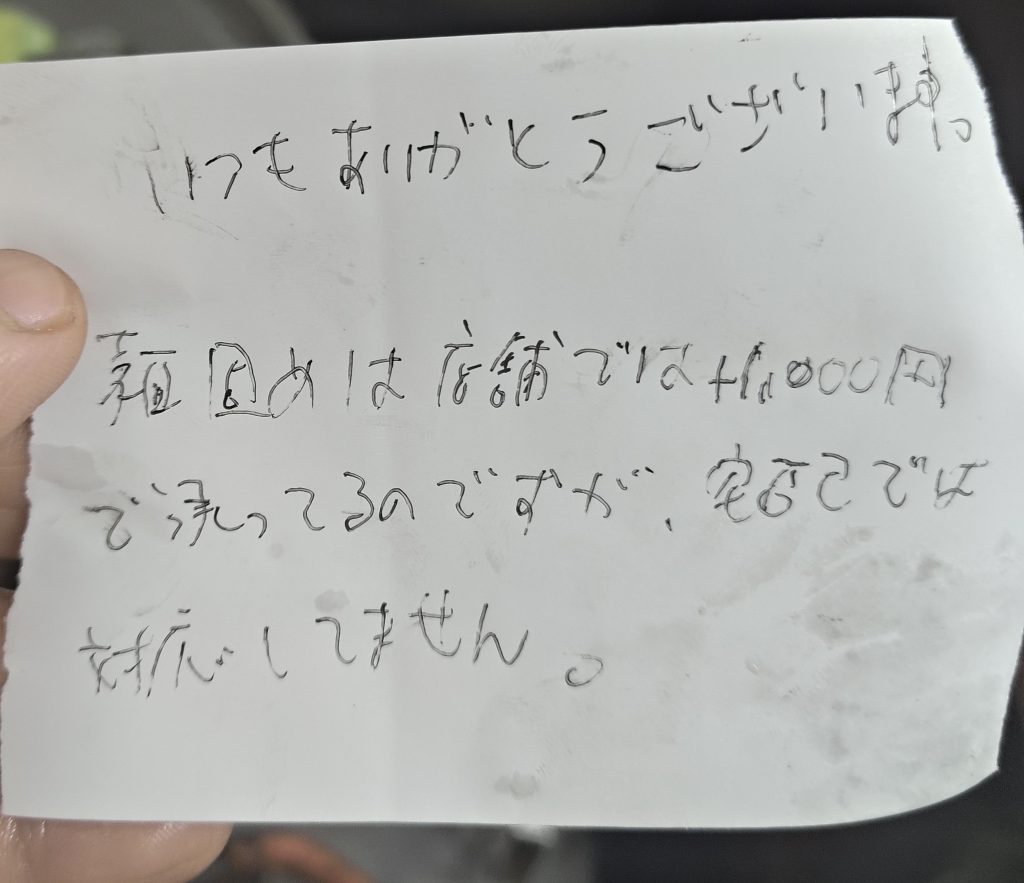 いつもありがとうございます。
麺固めは店舗では+1,000円
で承ってるのですが、宅配では
対応してません。